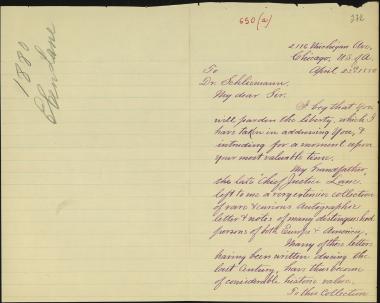 650 (a)
272
1880
Eben Lane
2116 Michigan Ave,
Chicago, U.S. of A.
April 23rd 1880
To
Dr. Schliemann.
My dear Sir.
I beg that you
will pardon the liberty, which I
have taken in addressing you, &
intruding for a moment upon
your most valuable time.
My Grandfather,
the late Chief Justice Lane
left to me a very extensive collection
of rare & curious Autographic
letters & notes of many distinguished
persons of both Europe & America.
Many of these letters
having been written during the
last Century, have thus become
of considerable historic value.
To this Collection